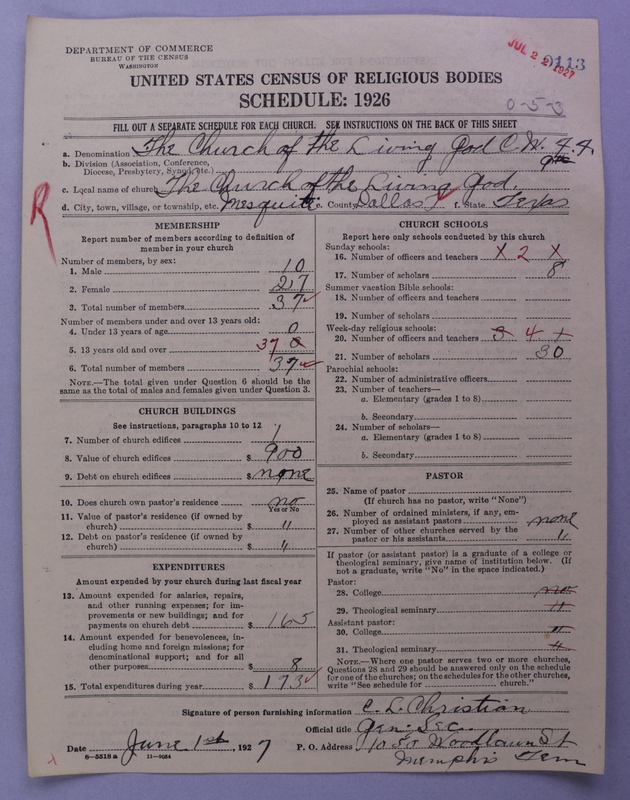 DEPARTMENT OF COMMERCE
BUREAU OF THE CENSUS
WASHINGTON
JUL 2 2 1927
0113
UNITED STATES CENSUS OF RELIGIOUS BODIES
SCHEDULE: 1926
0-5-3
FILL OUT A SEPARATE SCHEDULE FOR EACH CHURCH. SEE INSTRUCTIONS ON THE BACK OF THIS SHEET
a. Denomination The Church of the Living God C. W. F. F.
b. Division (Association, Conference,
Diocese, Presbytery, Synod, etc.)
c. Local name of church The Church of the Living God.
d. City, town, village, or township, etc. Mesquite e. County Dallas f. State Texas
R
MEMBERSHIP
Report number of members according to definition of
member in your church
Number of members, by sex:
1. Male 10
2. Female 27
3. Total number of members 37
Number of members under and over 13 years old:
4. Under 13 years of age 0
5. 13 years old and over 37 0
6. Total number of members 37
NOTE.—The total given under Question 6 should be the
same as the total of males and females given under Question 3.
CHURCH BUILDINGS
See instructions, paragraphs 10 to 12
7. Number of church edifices 1
8. Value of church edifices $ 900
9. Debt on church edifices $ none
10. Does church own pastor's residence no
Yes or No
11. Value of pastor's residence (if owned by
church) $ "
12. Debt on pastor's residence (if owned by
church) $ "
EXPENDITURES
Amount expended by your church during last fiscal year
13. Amount expended for salaries, repairs,
and other running expenses; for im-
provements or new buildings; and for
payments on church debt $ 165
14. Amount expended for benevolences, in-
cluding home and foreign missions; for
denominational support; and for all
other purposes $ 8
15. Total expenditures during year $ 173
CHURCH SCHOOLS
Report here only schools conducted by this church
Sunday schools:
16. Number of officers and teachers X 2 X
17. Number of scholars 8
Summer vacation Bible schools:
18. Number of officers and teachers
19. Number of scholars
Week-day religious schools:
20. Number of officers and teachers 3 4 1
21. Number of scholars 30
Parochial schools:
22. Number of administrative officers
23. Number of teachers—
a. Elementary (grades 1 to 8)
b. Secondary
24. Number of scholars—
a. Elementary (grades 1 to 8)
b. Secondary
PASTOR
25. Name of pastor
(If church has no pastor, write "None")
26. Number of ordained ministers, if any, em-
ployed as assistant pastors none
27. Number of other churches served by the
pastor or his assistants "
If pastor (or assistant pastor) is a graduate of a college or
theological seminary, give name of institution below. (If
not a graduate, write "No" in the space indicated.)
Pastor:
28. College no
29. Theological seminary "
Assistant pastor:
30. College "
31. Theological seminary "
NOTE.—Where one pastor serves two or more churches,
Questions 28 and 29 should be answered only on the schedule
for one of the churches; on the schedules for the other churches,
write "See schedule for church."
Signature of person furnishing information C. L. Christian
Official title Gen. Sec.
Date June 1st, 1927 P. O. Address 1050 Woodlawn St
Memphis Tenn
8-5518a 11-9034